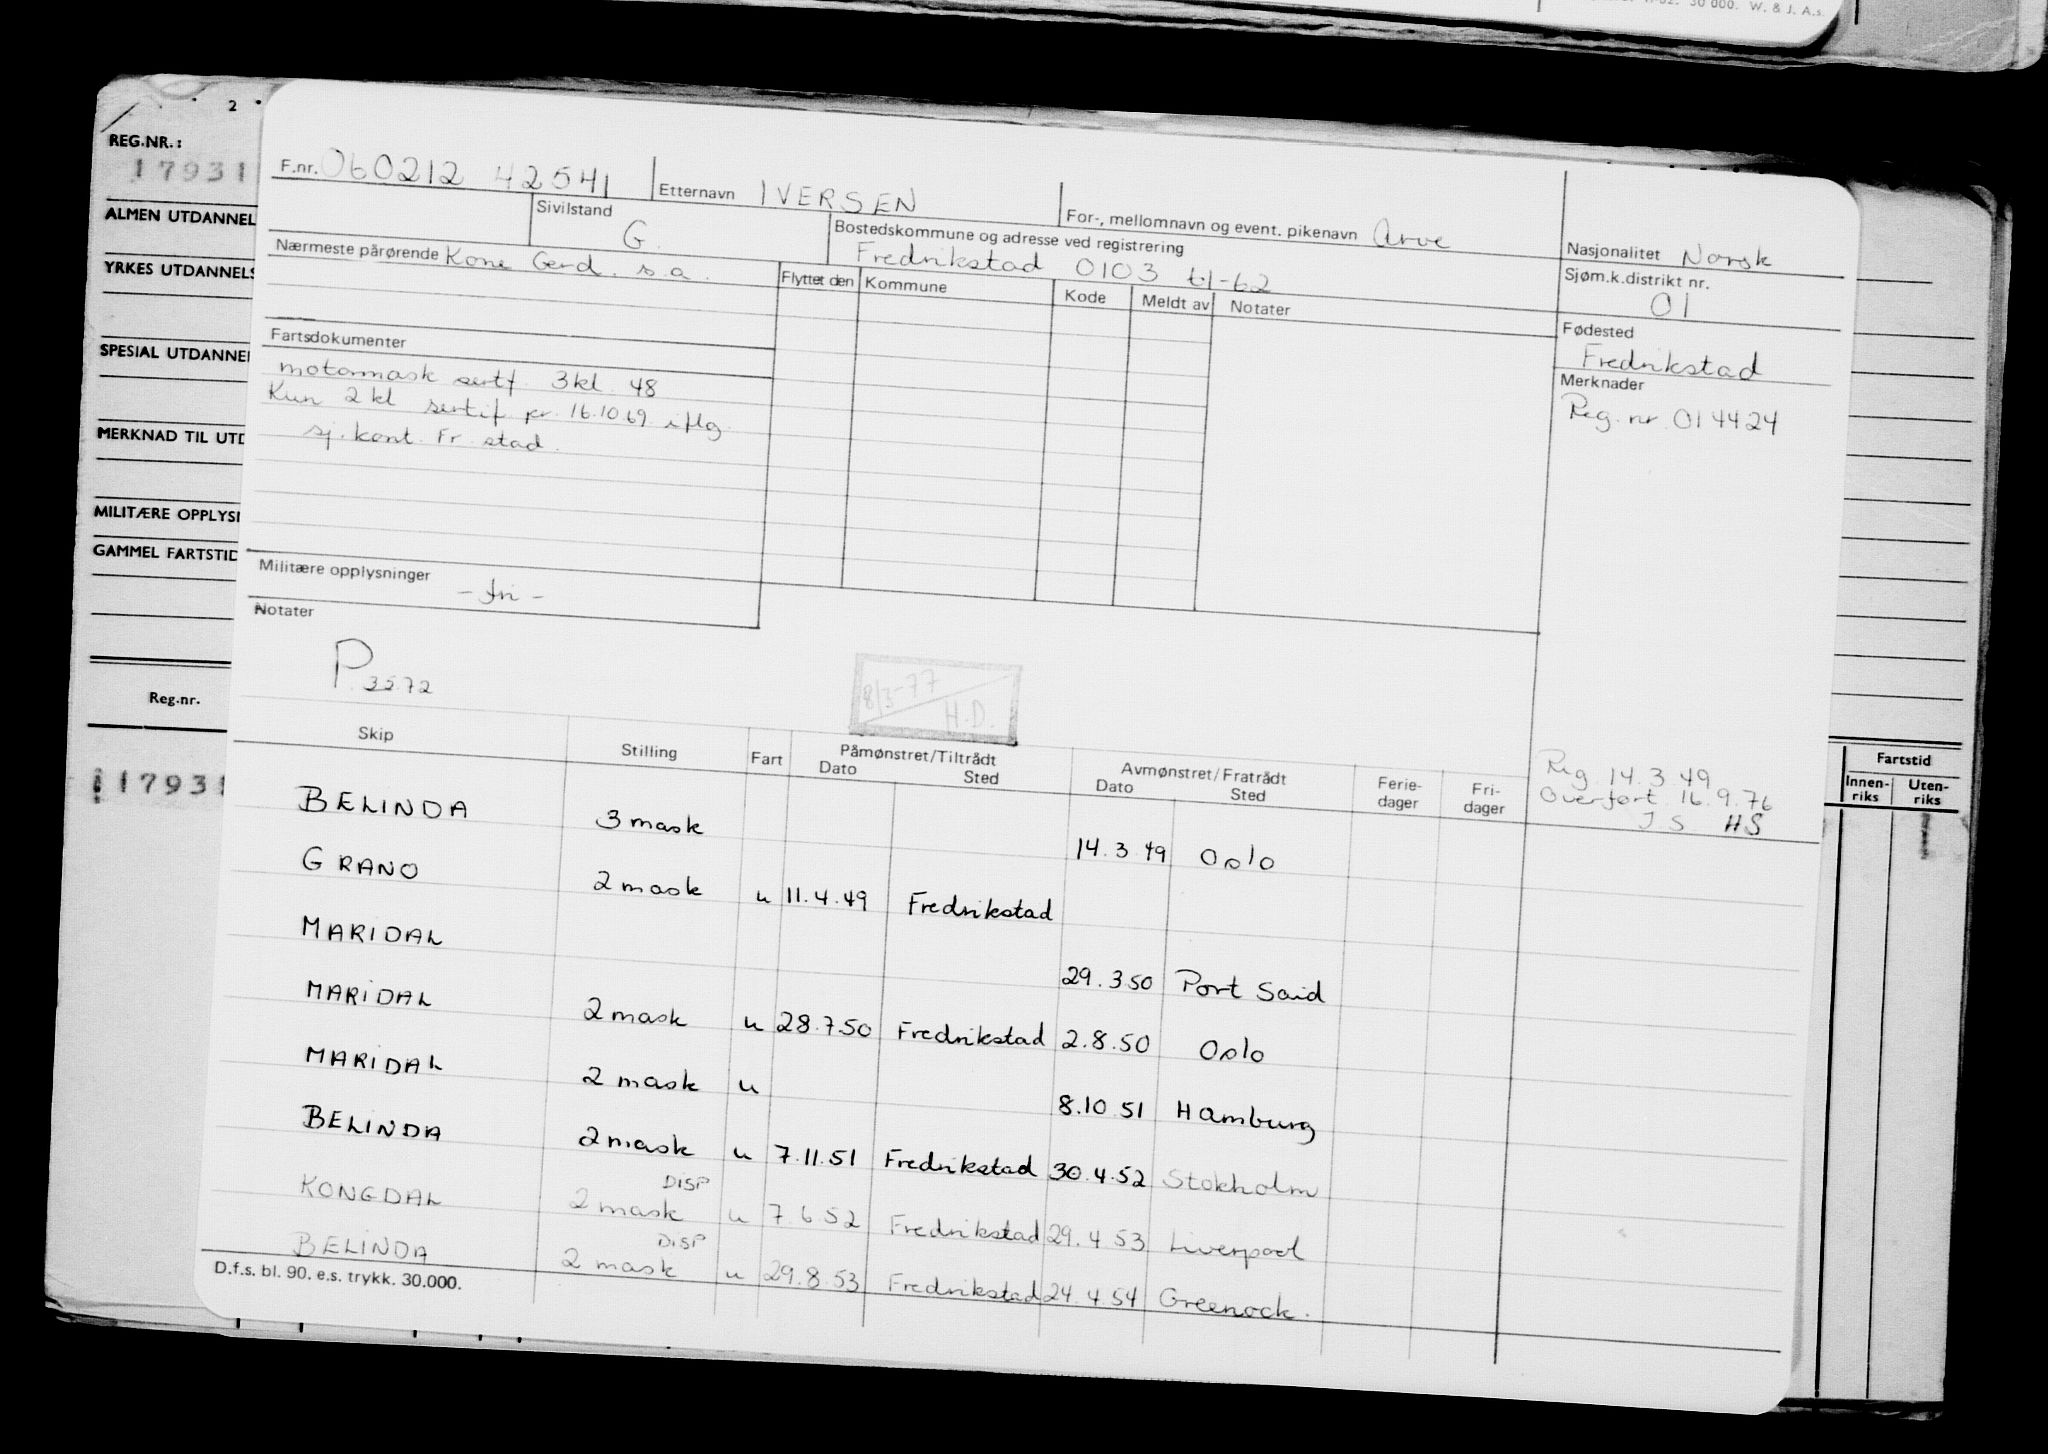 30 000. W. & J. A.s.
2
REG.NR.:
17931
ALMEN UTDANNEL
YRKES UTDANNELS
SPESIAL UTDANNE
MERKNAD TIL UTD
MILITÆRE OPPLYS
GAMMEL FARTSTID
Reg.nr.
17931
F.nr. 060212 42541 Etternavn IVERSEN For-, mellomnavn og event. pikenavn Arve
Nasjonalitet Norsk
Sivilstand G. Bostedskommune og adresse ved registrering
Fredrikstad 0103 t.1-62
Sjøm.k.distrikt nr.
01
Nærmeste pårørende Kone Gerd. s.a.
Flyttet den Kommune Kode Meldt av Notater
Fødested
Fredrikstad
Merknader
Reg. nr. 014424
Fartsdokumenter
motormask sertf. 3 kl. 48
Kun 2 kl sertif pr. 16.10.69 iflg.
sj. kont. Fr. stad.
Militære opplysninger
- fri -
Notater
P. 3572
8/3-77
H.D.
Reg. 14.3.49
Overført 16.9.76
JS HS
Skip Stilling Fart Påmønstret/Tiltrådt Dato Sted Avmønstret/Fratrådt Dato Sted Ferie-dager Fri-dager
Fartstid
Innen-riks Uten-riks
BELINDA 3 mask 14.3.49 Oslo
GRANO 2 mask u 11.4.49 Fredrikstad
MARIDAL 29.3.50 Port Said
MARIDAL 2 mask u 28.7.50 Fredrikstad 2.8.50 Oslo
MARIDAL 2 mask u 8.10.51 Hamburg
BELINDA 2 mask u 7.11.51 Fredrikstad 30.4.52 Stokholm
KONGDAL DISP 2 mask u 7.6.52 Fredrikstad 29.4.53 Liverpool
BELINDA DISP 2 mask u 29.8.53 Fredrikstad 24.4.54 Greenock.
D.f.s. bl. 90. e.s. trykk. 30.000.